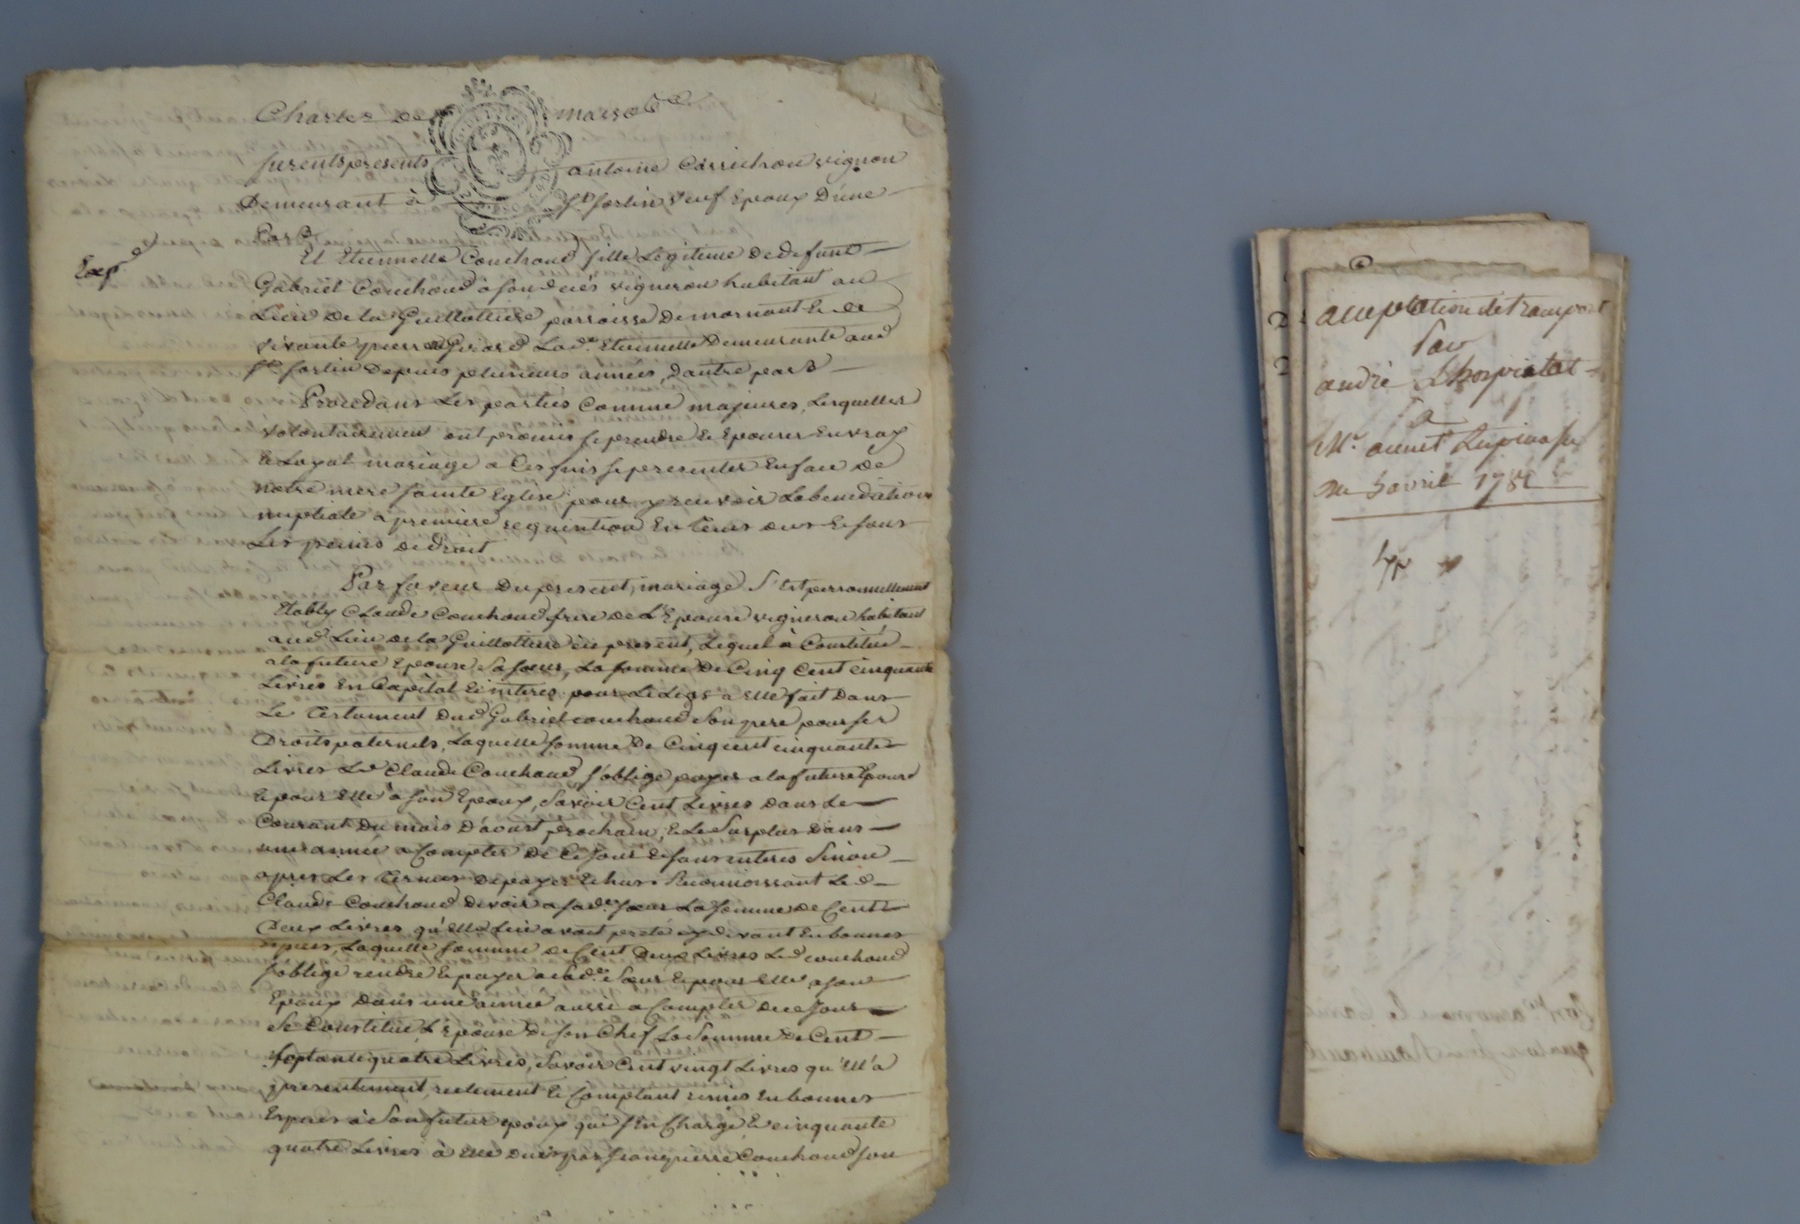 Charles de mars
furents presents antoine Carrichon vignon
Demeurant à St. forlin Veuf Epoux D'une
Part
Exp
Et Etiennette Couchoud fille Legitime de defunt
Gabriel Couchoud a son deces vigneron habitant au
Lieu De la Guillottiere parroisse De mornant & de
vivante pierrette La de. Etiennette Demeurante aud
St. forlin Depuis plusieurs années, D'autre part
Procedans Les parties Comme majeures, Lesquelles
volontairement ont promis se prendre & Epouser En vray
& Loyal mariage a Ces fins se presenter En face de
notre mere Sainte Eglise pour y recevoir La benediction
nuptiale a premiere requisition
Les peines de droit
Par faveur Du present mariage S'est personnellement
Etably Claude Couchoud frere de L'Epouse vigneron habitant
aud Lieu de la Guillottiere ici present, Lequel à Constitué
a la future Epouse Sa soeur, La somme De Cinq Cent cinquante
Livres En Capital & interes pour Le Legs à Elle fait Dans
Le Testament Dud Gabriel couchoud Son pere pour ses
Droits paternels, Laquelle somme De Cinq cent cinquante
Livres Led Claude Couchoud s'oblige payer a la future Epouse
& pour Elle à son Epoux, Savoir Cent Livres Dans Le
Courant Du mois D'aoust prochain, & Le Surplus Dans
une année a Compter De Ce Jour & sans interes Sinon
apres Les Termes De payer Echus Reconnoissant Led
Claude Couchoud devoir a sade. soeur La somme de Cent
Deux Livres qu'elle Lui avait preté cy devant En bonnes
Especes, Laquelle somme de Cent Deux Livres Led couchoud
s'oblige rendre & payer a lade. Soeur & pour Elle a son
Epoux Dans une année aussi a Compter de ce Jour
Se Constitue L'Epouse De son Chef La Somme de Cent
septante quatre Livres, Savoir Cent vingt Livres qu'Ell'a
presentement, reelement & Comptant remis En bonnes
Especes à Son futur epoux qui s'en Charge & cinquante
quatre Livres à Elle Dues par Jean pierre Couchoud Son
acceptation de transport
Par
andré L'hospital
a
Mr. annet
Du 5 avril